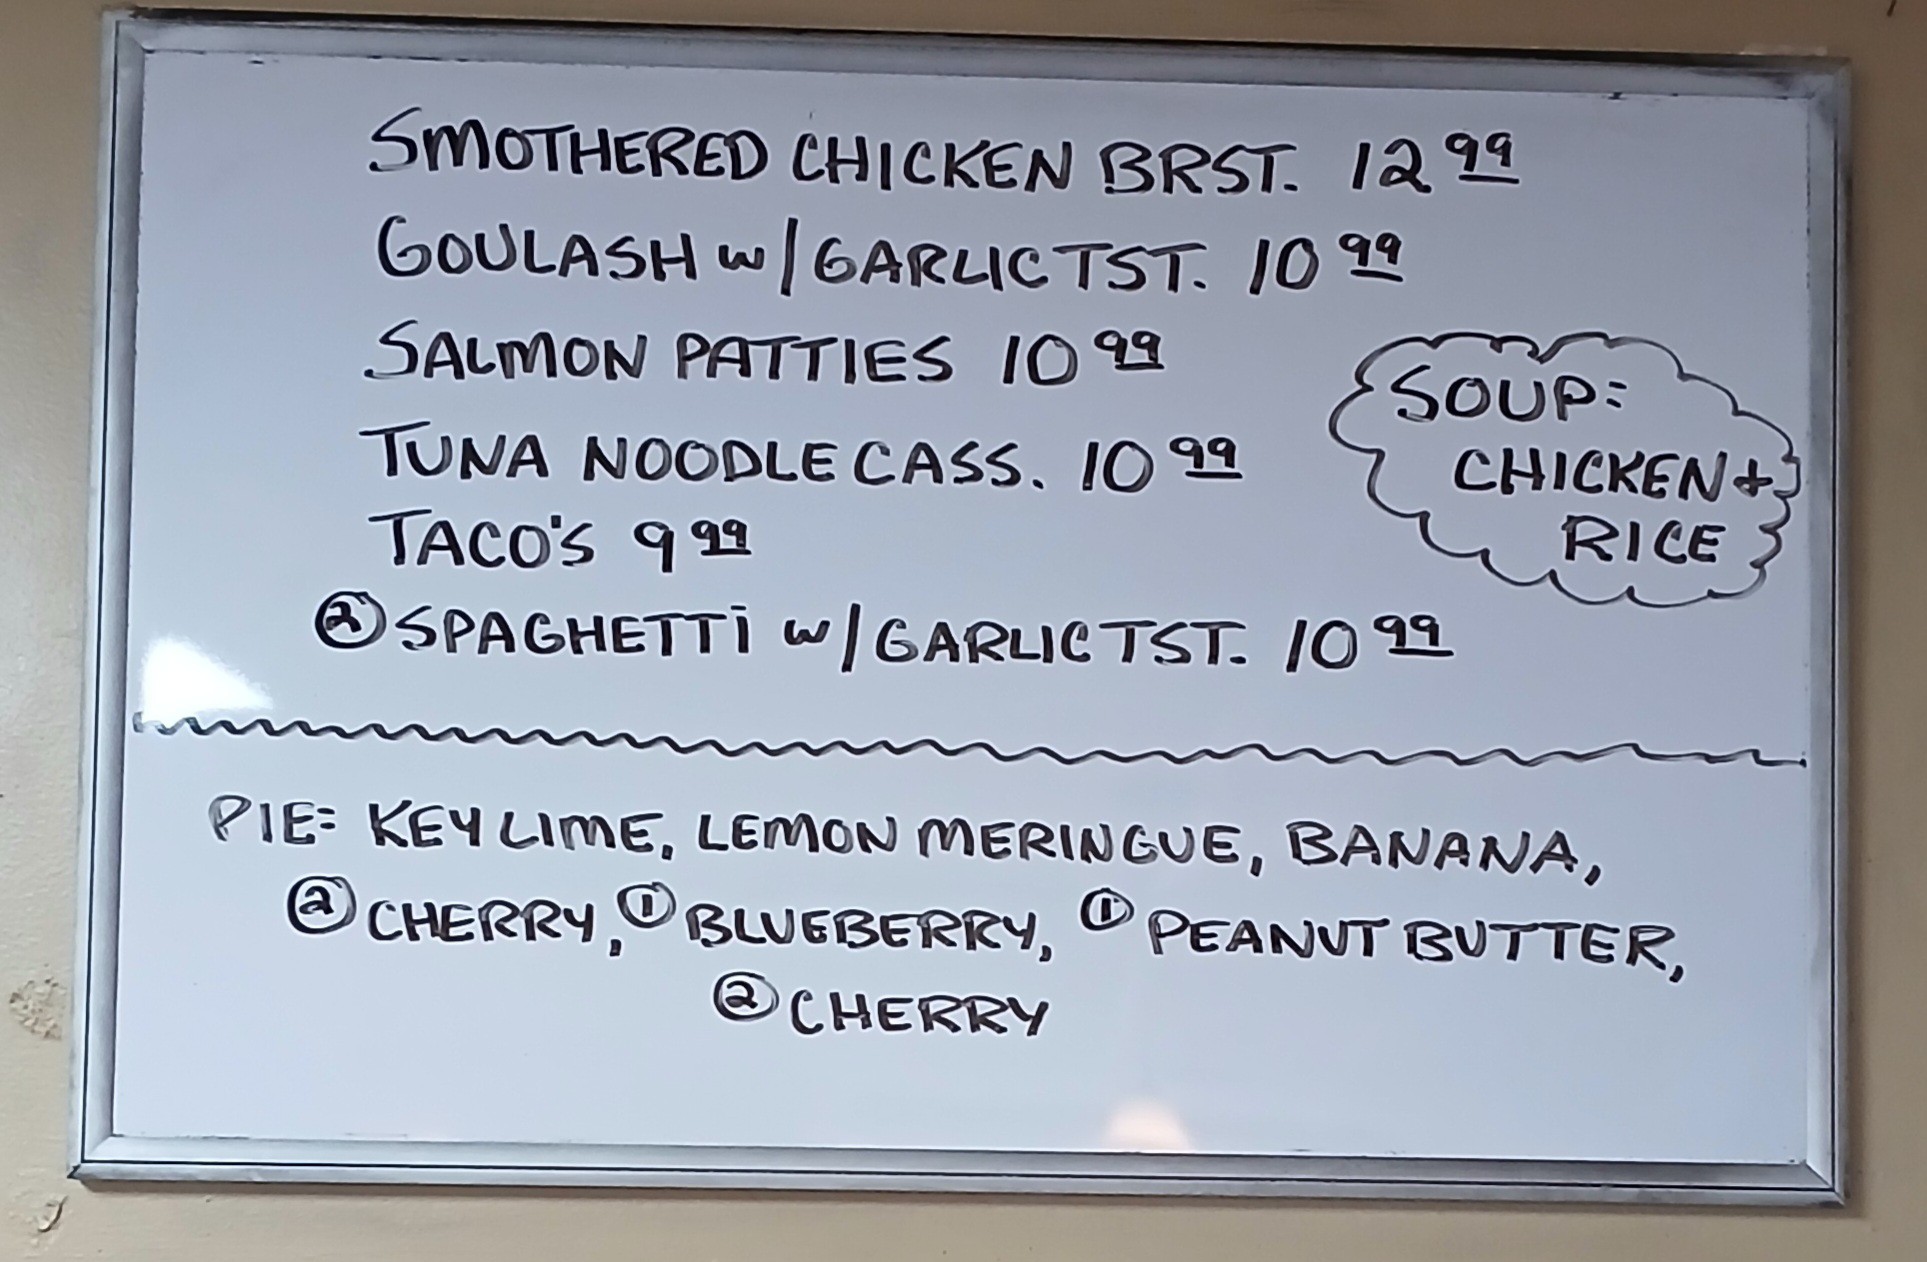 SMOTHERED CHICKEN BRST. 12 99
GOULASH w/ GARLIC TST. 10 99
SALMON PATTIES 10 99
TUNA NOODLE CASS. 10 99
TACO'S 9 99
② SPAGHETTI w/ GARLIC TST. 10 99
SOUP:
CHICKEN +
RICE
PIE: KEY LIME, LEMON MERINGUE, BANANA,
② CHERRY, ① BLUEBERRY, ① PEANUT BUTTER,
② CHERRY